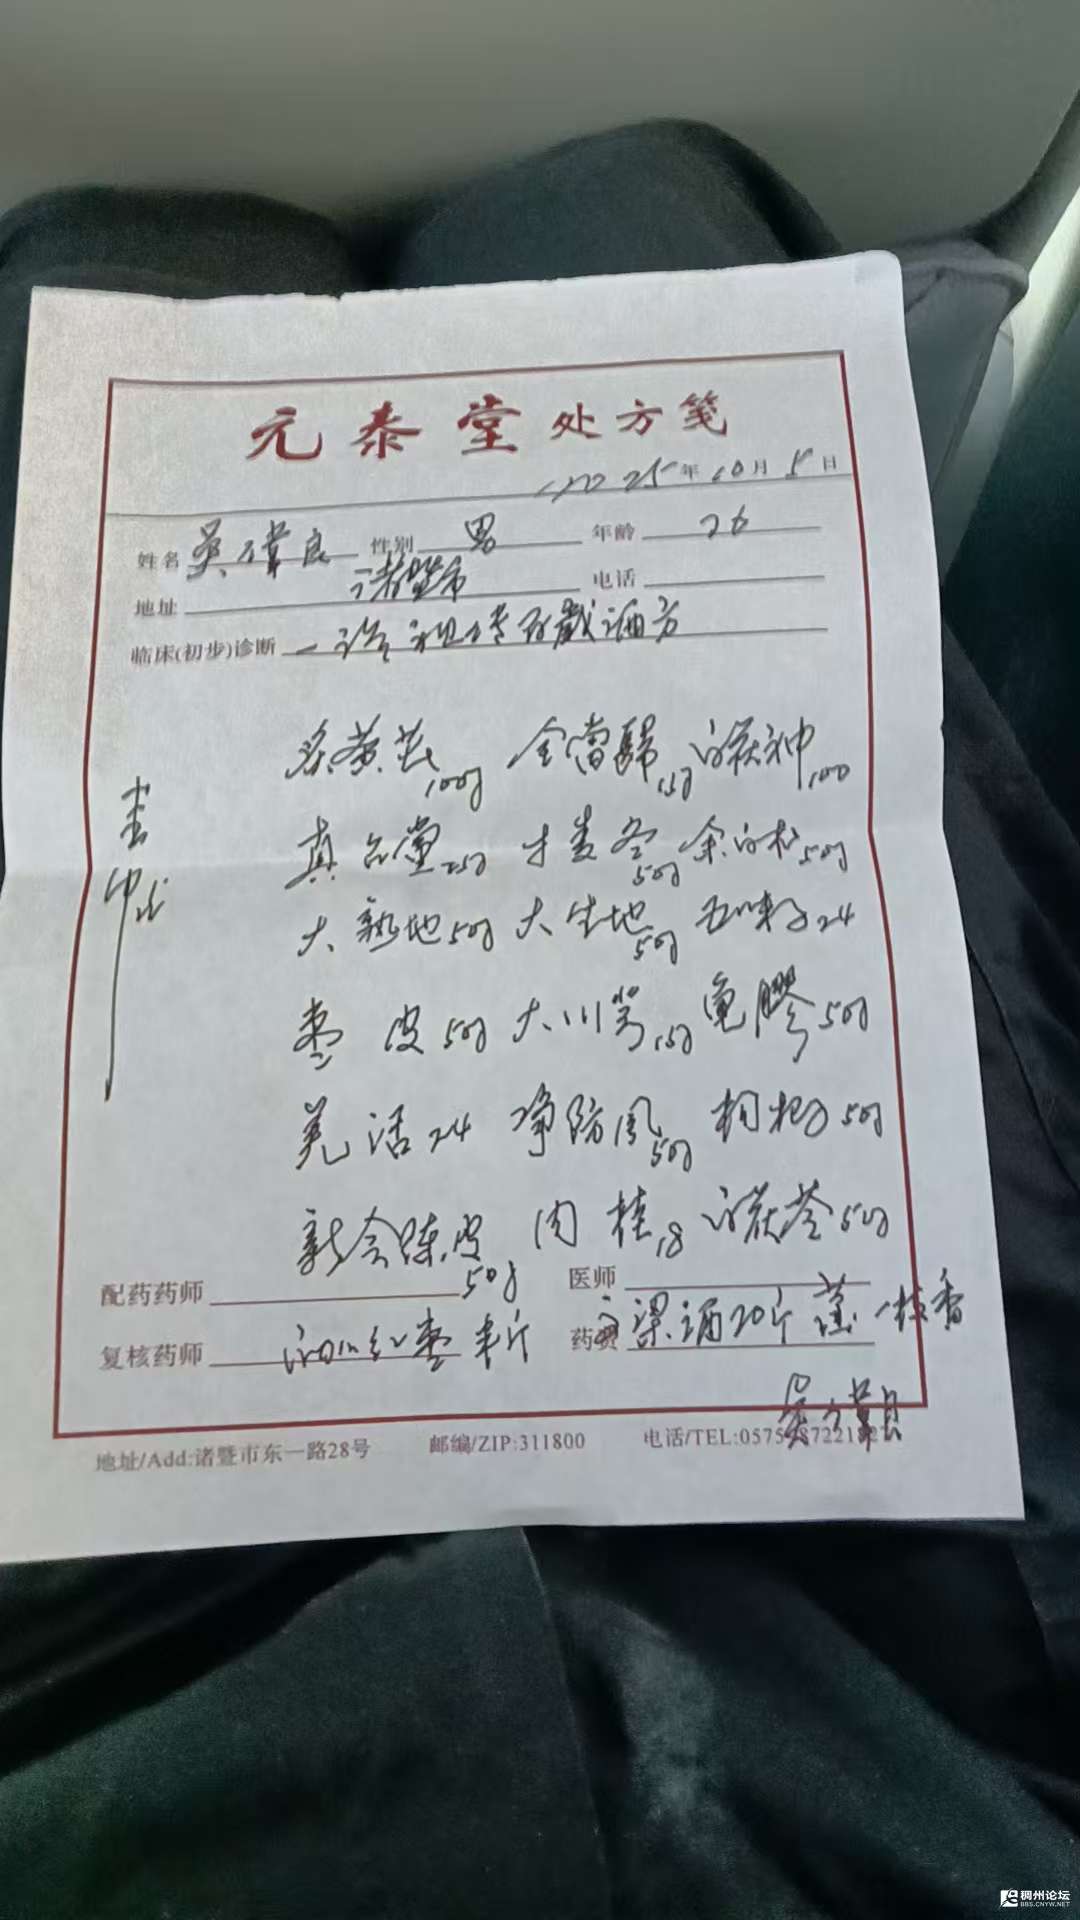 元泰堂处方笺
2025年10月5日
姓名 吴 良 性别 男 年龄 26
地址 诸暨市 电话
临床(初步)诊断 一 祖传 酒方
炙黄芪100g 全當歸15g 白茯神100
真台黨25g 寸麦冬50g 余白术50g
大熟地50g 大生地50g 五味子24
枣皮50g 大川芎15g 龟膠50g
羌活24 净防風50g 枸杞子50g
新会陈皮50g 肉桂18 白茯苓50g
配药药师 医师
复核药师 红枣半斤 药费 梁酒20斤 一枝香
吴
地址/Add:诸暨市东一路28号 邮编/ZIP:311800 电话/TEL:0575
稠州论坛
BBS.CNYW.NET